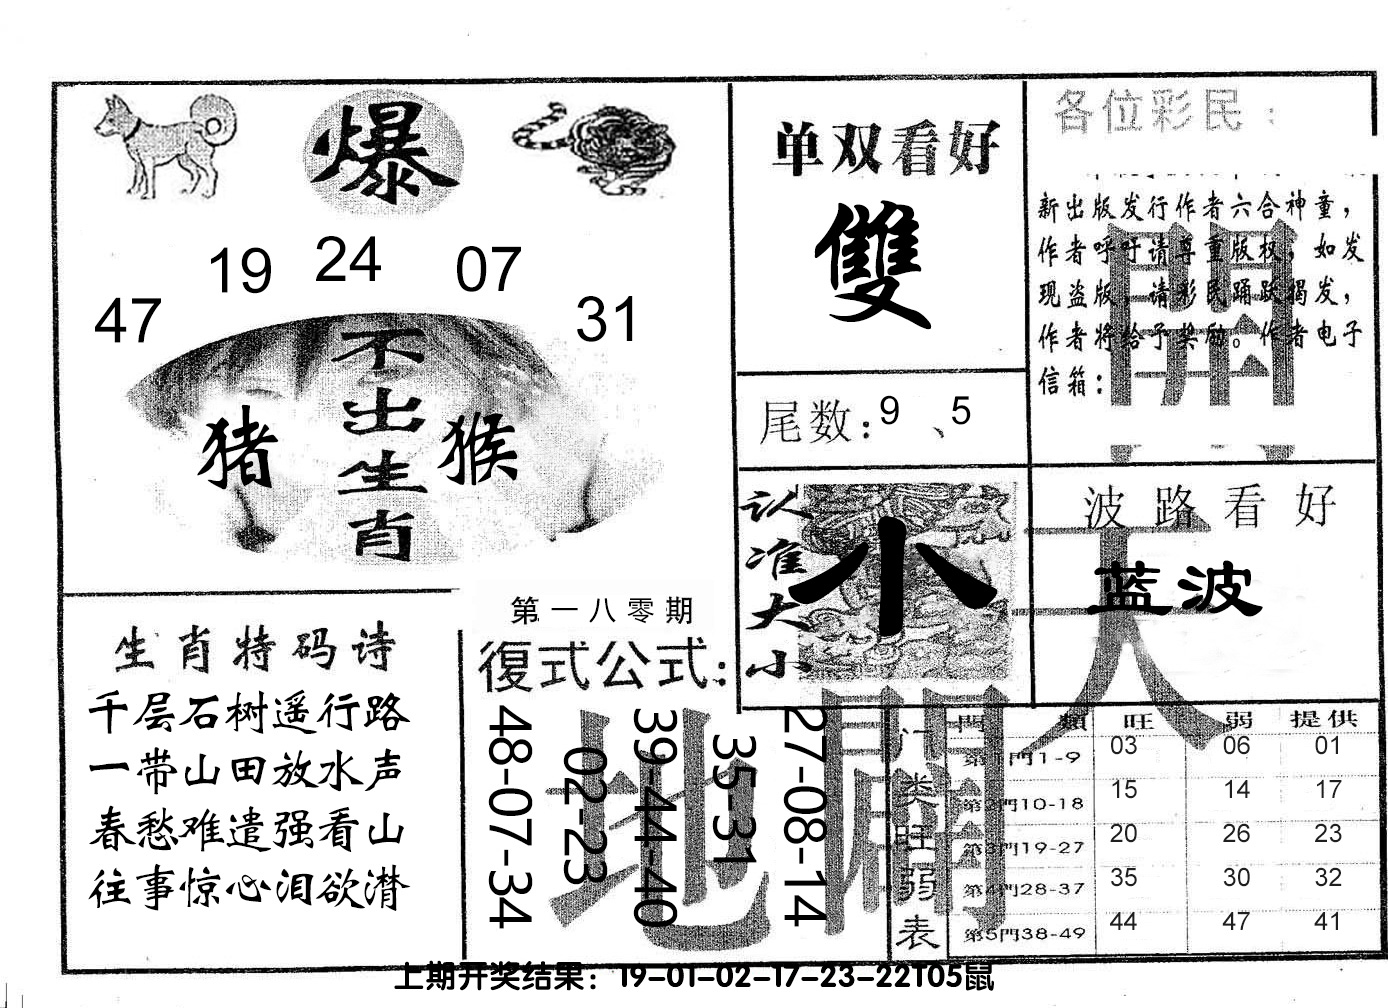 爆
47
19
24
07
31
不出生肖
猪
猴
单双看好
雙
尾数:9、5
认准大小
小
各位彩民:
新出版发行作者六合神童，
作者呼吁请尊重版权，如发
现盗版，请彩民踊跃揭发，
作者将给予奖励。作者电子
信箱:
開
天
闢
地
波路看好
蓝波
生肖特码诗
千层石树遥行路
一带山田放水声
春愁难遣强看山
往事惊心泪欲潸
第一八零期
復式公式:
48-07-34
02-23
39-44-40
35-31
27-08-14
门类旺弱表
門類 旺 弱 提供
第1門1-9 03 06 01
第2門10-18 15 14 17
第3門19-27 20 26 23
第4門28-37 35 30 32
第5門38-49 44 47 41
上期开奖结果：19-01-02-17-23-22T05鼠